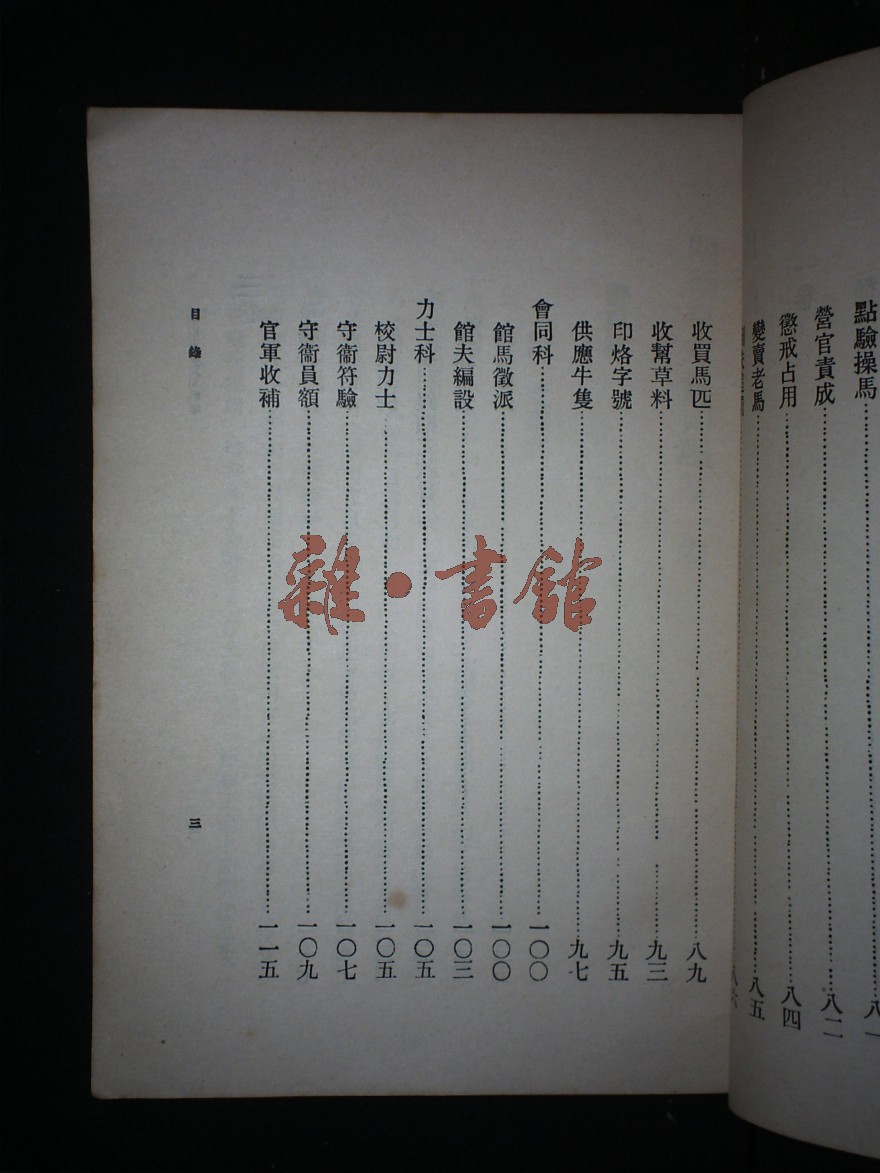 點驗操馬……八一
營官責成……八二
懲戒占用……八四
變賣老馬……八五
八六
收買馬匹……八九
收幫草料……九三
印烙字號……九五
供應牛隻……九七
會同科……一〇〇
館馬徵派……一〇〇
館夫編設……一〇三
力士科……一〇五
校尉力士……一〇五
守衞符驗……一〇七
守衞員額……一〇九
官軍收補……一一五
目錄
三
雜·書館